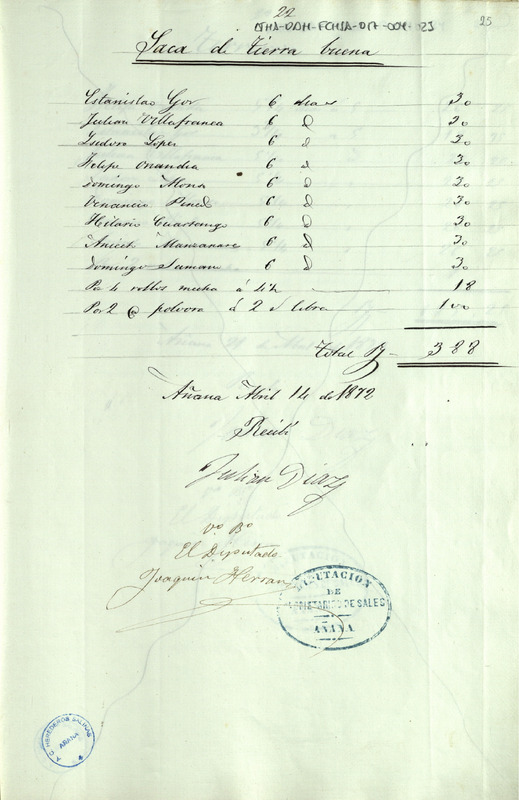 22
ATHA-DAH-FCHSA-017-004-23
25
Saca de tierra buena
Estanislao Gor 6 dias 30
Julian Villafranca 6 d 30
Isidoro Lopez 6 d 30
Felipe Onandia 6 d 30
Domingo Mona 6 d 30
Venancio Pined 6 d 30
Hilario Cuartango 6 d 30
Aniceto Manzanare 6 d 30
Domingo Samano 6 d 30
Por 4 rollos mecha á 4½ 18
Por 2 @ polvora á 2 d libra 100
Total 388
Añana Abril 14 de 1872
Recibí
Julian Diaz
Vº Bº
El Diputado
Joaquin Herran
DIPUTACION
DE
PROPIETARIOS DE SALES
AÑANA
A.C. HEREDEROS SALINAS
AÑANA